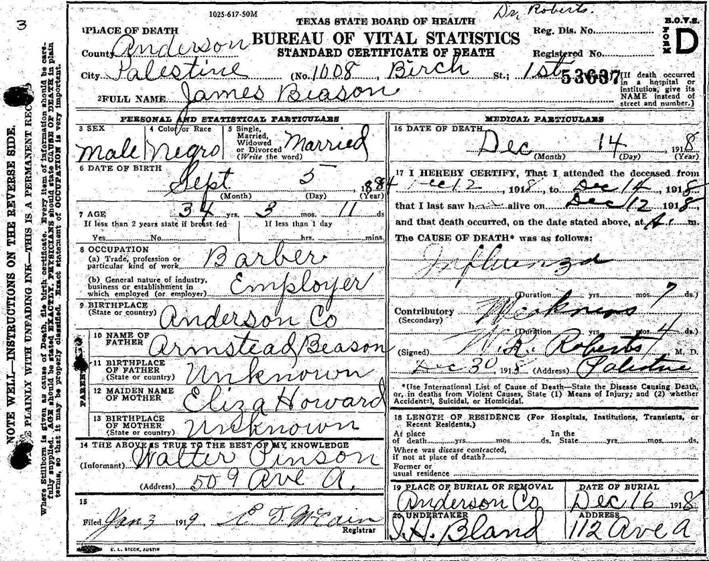 3
1025-617-50M
TEXAS STATE BOARD OF HEALTH
Dr Roberts.
B.O.V.S.
1PLACE OF DEATH
BUREAU OF VITAL STATISTICS
Reg. Dis. No.
FORM D
County Anderson
STANDARD CERTIFICATE OF DEATH
Registered No.
City Palestine (No. 1008, Birch St.; 1st
53697
[If death occurred in a hospital or institution, give its NAME instead of street and number.]
2FULL NAME James Beason
PERSONAL AND STATISTICAL PARTICULARS
3 SEX
Male
4 Color/or Race
Negro
5 Single, Married, Widowed or Divorced (Write the word)
Married
6 DATE OF BIRTH
Sept 5 1884
(Month) (Day) (Year)
7 AGE
34 yrs. 3 mos. 11 ds.
If less than 2 years state if breast fed
Yes No
If less than 1 day
hrs. mins.
8 OCCUPATION
(a) Trade, profession or particular kind of work Barber
(b) General nature of industry, business or establishment in which employed (or employer) Employer
9 BIRTHPLACE
(State or country) Anderson Co
PARENTS
10 NAME OF FATHER Armstead Beason
11 BIRTHPLACE OF FATHER (State or country) Unknown
12 MAIDEN NAME OF MOTHER Eliza Howard
13 BIRTHPLACE OF MOTHER (State or country) Unknown
14 THE ABOVE IS TRUE TO THE BEST OF MY KNOWLEDGE
(Informant) Walter Pinson
(Address) 509 Ave A.
15
Filed Jan 3 1919 E T McCain
Registrar
E. L. STECK, AUSTIN
MEDICAL PARTICULARS
16 DATE OF DEATH
Dec 14 1918
(Month) (Day) (Year)
17 I HEREBY CERTIFY, That I attended the deceased from
Dec 12, 1918, to Dec 14, 1918
that I last saw h alive on Dec 12 1918
and that death occurred, on the date stated above, at A. m.
The CAUSE OF DEATH* was as follows:
Influenza
(Duration yrs. mos. 7 ds.)
Contributory Weakness
(Secondary)
(Duration yrs. mos. 4 ds.)
(Signed) Roberts M. D.
Dec 30 1918 (Address) Palestine
*Use International List of Cause of Death—State the Disease Causing Death, or, in deaths from Violent Causes, State (1) Means of Injury; and (2) whether Accident?l, Suicidal, or Homicidal.
18 LENGTH OF RESIDENCE (For Hospitals, Institutions, Transients, or Recent Residents.)
At place of death yrs. mos. ds. In the State yrs. mos. ds.
Where was disease contracted, if not at place of death?
Former or usual residence
19 PLACE OF BURIAL OR REMOVAL
Anderson Co
DATE OF BURIAL
Dec 16 1918
20 UNDERTAKER
J. H. Bland
ADDRESS
112 Ave A
NOTE WELL—INSTRUCTIONS ON THE REVERSE SIDE.
PLAINLY WITH UNFADING INK—THIS IS A PERMANENT RECORD
Where Stillborn is given as cause of Death, file birth certificate. Every item of information should be carefully supplied. AGE should be stated EXACTLY. PHYSICIANS should state CAUSE OF DEATH in plain terms, so that it may be properly classified. Exact statement of OCCUPATION is very important.